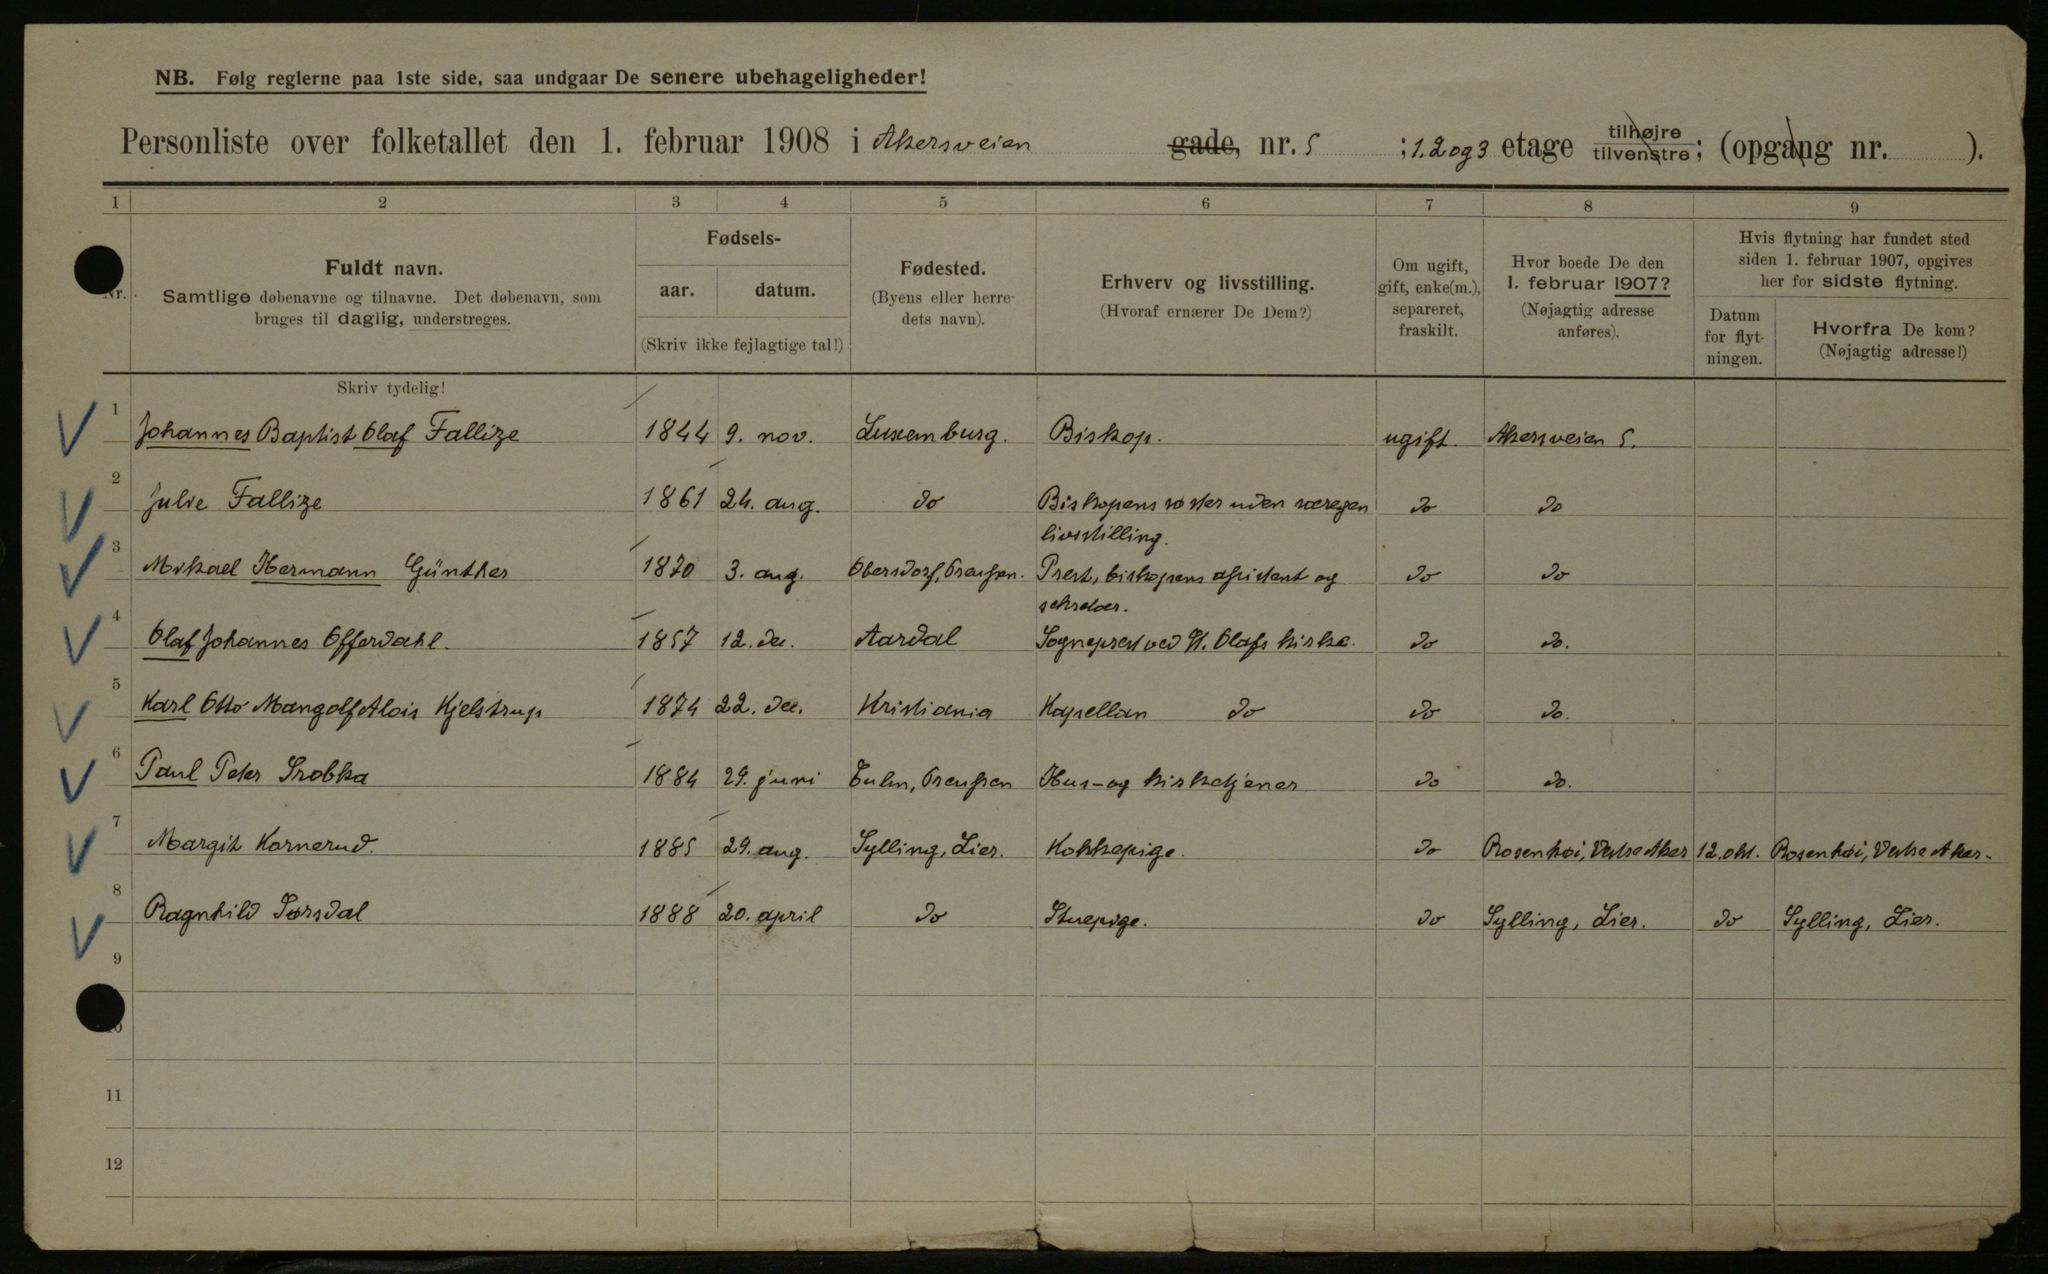 NB. Følg reglerne paa 1ste side, saa undgaar De senere ubehageligheder!
Personliste over folketallet den 1. februar 1908 i Akersveien gade, nr. 5 ; 1. 2 og 3 etage tilhøjre tilvenstre; (opgang nr. ).
1 2 3 4 5 6 7 8 9
Nr.
Fuldt navn.
Samtlige døbenavne og tilnavne. Det døbenavn, som
bruges til daglig, understreges.
Skriv tydelig!
Fødsels-
aar. datum.
(Skriv ikke fejlagtige tal!)
Fødested.
(Byens eller herre-
dets navn).
Erhverv og livsstilling.
(Hvoraf ernærer De Dem?)
Om ugift,
gift, enke(m.),
separeret,
fraskilt.
Hvor boede De den
1. februar 1907?
(Nøjagtig adresse
anføres).
Hvis flytning har fundet sted
siden 1. februar 1907, opgives
her for sidste flytning.
Datum
for flyt-
ningen.
Hvorfra De kom?
(Nøjagtig adresse!)
1 Johannes Baptist Olaf Fallize 1844 9. nov. Luxemburg. Biskop. ugift. Akersveien 5.
2 Julie Fallize 1861 24. aug. do Biskopens søster uden særegen do do
livsstilling.
3 Mikael Hermann Günther 1870 3. aug. Obersdorf, Preussen. Prest, biskopens assistent og do do
sekretær.
4 Olaf Johannes Offerdahl. 1857 12. de. Aardal Sogneprest ved St. Olafs kirke. do do.
5 Karl Otto Mangolf Alois Kjelstrup 1874 22. dec. Kristiania Kapellan do do do.
6 Paul Peter Srobka 1884 29. juni Culm, Preussen Hus- og kirketjener do do.
7 Margit Kornerud. 1885 29. aug. Sylling, Lier. Kokkepige. do Rosenhøi, Vestre Aker 12. okt. Rosenhøi, Vestre Aker.
8 Ragnhild Sørsdal 1888 20. april do Stuepige. do Sylling, Lier. do Sylling, Lier.
9
10
11
12